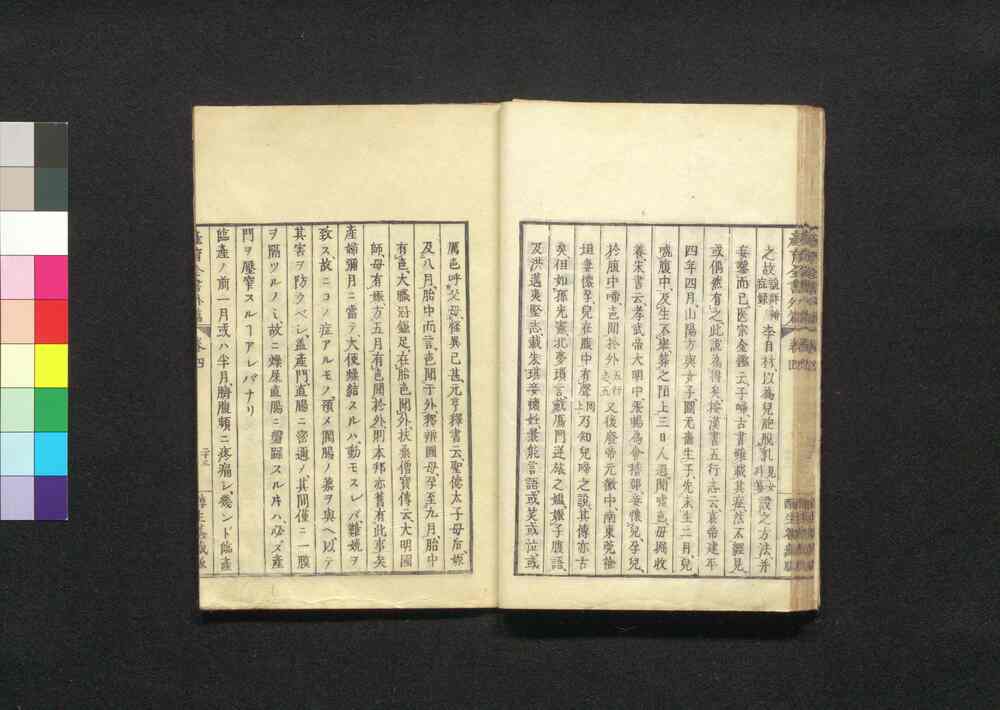 之故說詳袖症錄李自材以為兒胞脫乳見女科為設之方法并
妄鑿而已医宗金鑑云子啼古書雖載其症然不經見
或偶然有之此說為得矣按漢書五行志云哀帝建平
四年四月山陽方與女子田無嗇生子先未生二月兒
嗁腹中及生不舉葬之陌上三日人過聞嗁色毋掘收
養宋書云孝武帝大明中張暢為會稽郡妾懷兒孕兒
於腹中啼色聞於外五行志五又後廢帝元徽中南東莞徐
坦妻懷孕兒在腹中有聲同上乃知兒啼之說其傳亦古
矣但如孫光憲北夢瑣言載馮門逆旅之孀嬢子腹語
及洪邁夷堅志載朱琪妾懷妊曩能言語或笑或泣或
厲色呼父母怪異已甚元亨釋書云聖德太子母后娠
及八月胎中而言色聞于外釋辨圓母孕至九月胎中
有色大職冠鎌足在胎色聞外扶桑僧寶傳云大明國
師母有娠方五月有色聞於外則本邦亦舊有此事矣
産婦彌月ニ當テ大便燥結スルハ動モスレバ難娩ヲ
致ス故ニコノ症アルモノ預メ潤腸ノ藥ヲ與ヘ以テ
其害ヲ防クベシ盖産門直腸ニ密邇ノ其間僅ニ一膜
ヲ隔ツルノミ故ニ燥屎直腸ニ磐踞スル片ハ必ズ産
門ヲ壓窄スルヿアレバナリ
臨産ノ前一月或ハ半月臍腹頻ニ疼痛シ幾ンド臨産
産育全書外篇 卷四 二十三